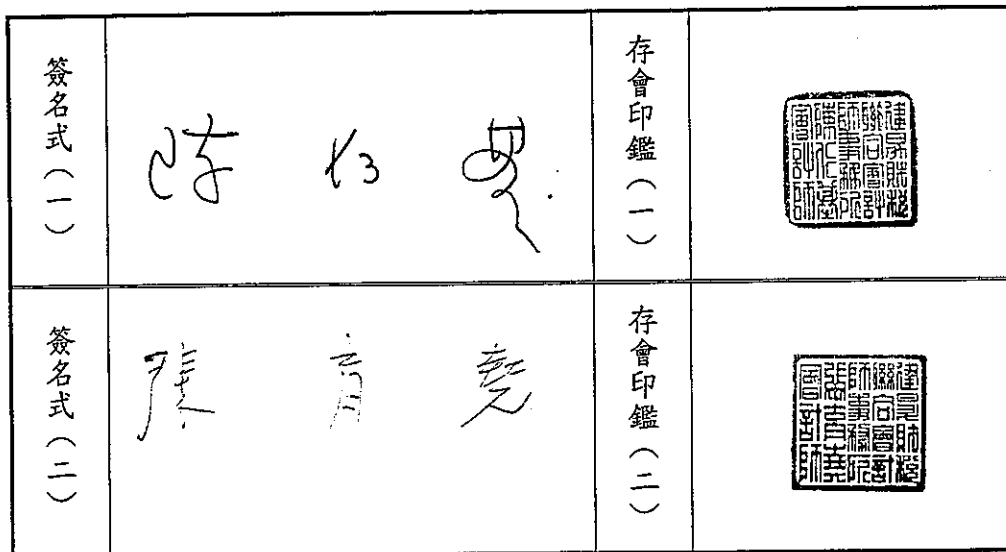 簽名式（一）
陳仁基
存會印鑑（一）
建昇財稅
聯合會計
師事務所
陳仁基
會計師
簽名式（二）
張育堯
存會印鑑（二）
建昇財稅
聯合會計
師事務所
張育堯
會計師